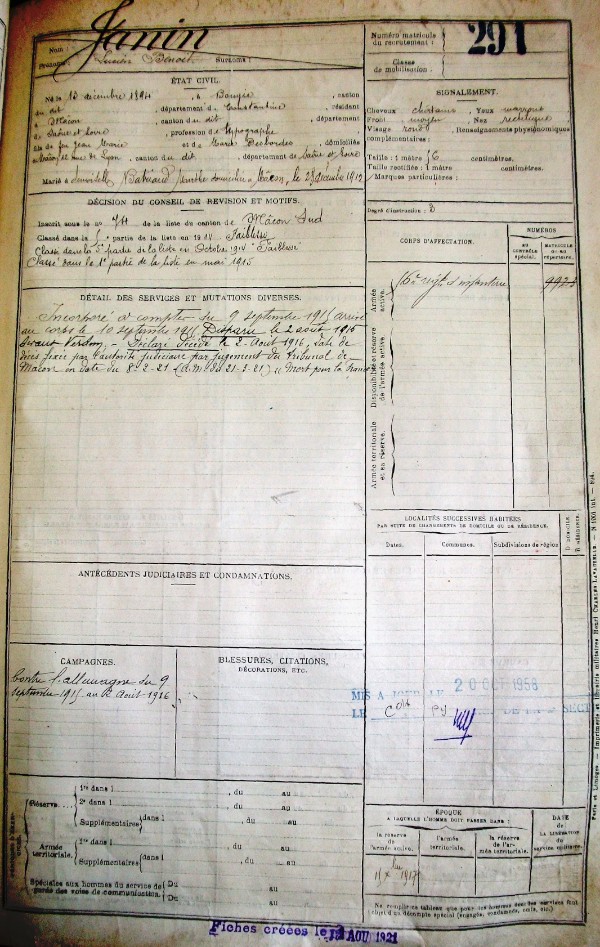 Nom : Janin
Prénoms : Lucien Benoit Surnoms :
Numéro matricule
du recrutement :
291
Classe
de mobilisation :
ÉTAT CIVIL.
Né le 13 décembre 1894, à Bougie, canton
du dit, département de Constantine, résidant
à Mâcon, canton du dit, département
de Saône et Loire, profession de typographe
fils de feu Jean Marie et de Desbordes, domiciliés
rue de Lyon, canton du dit, département de Saône et Loire
Marié à domiciliée à Mâcon, le décembre 1912
SIGNALEMENT.
Cheveux chatains Yeux marrons
Front moyen Nez rectiligne
Visage rond Renseignements physionomiques
complémentaires :
Taille : 1 mètre 56 centimètres.
Taille rectifiée : 1 mètre centimètres.
Marques particulières :
Degré d'instruction : 3
DÉCISION DU CONSEIL DE REVISION ET MOTIFS.
Inscrit sous le no 74 de la liste du canton de Mâcon Sud
Classé dans la 5e partie de la liste en 1914 Faiblesse
Classé dans la 5e partie de la liste en Octobre 1914 Faiblesse
Classé dans la 1e partie de la liste en mai 1915
CORPS D'AFFECTATION.
NUMÉROS
au contrôle spécial.
MATRICULE ou au répertoire.
Armée active.
régt d'infanterie
Disponibilité et réserve de l'armée active.
Armée territoriale et sa réserve.
DÉTAIL DES SERVICES ET MUTATIONS DIVERSES.
Incorporé à compter du 9 septembre 1915 arrivé
au corps le 10 septembre 1915 Disparu le 2 août 1916
devant Verdun. - Déclaré Décédé le 2 Août 1916, date de
décès fixée par l'autorité judiciaire par jugement du Tribunal de
Mâcon en date du 8-2-21 (A.M. du 21-3-21) "Mort pour la France
LOCALITÉS SUCCESSIVES HABITÉES
PAR SUITE DE CHANGEMENTS DE DOMICILE OU DE RÉSIDENCE.
Dates. Communes. Subdivisions de région
D DOMICILE.
R RÉSIDENCE.
ANTÉCÉDENTS JUDICIAIRES ET CONDAMNATIONS.
CAMPAGNES.
Contre l'Allemagne du 9
septembre 1915 au 2 Août 1916
BLESSURES, CITATIONS,
DÉCORATIONS, ETC.
MIS A JOUR LE 20 OCT 1958
LE DE LA SECT
Réserve
1re dans l , du au
2e dans l , du au
Supplémentaires dans l , du au
Armée territoriale.
1re dans l , du au
Supplémentaires dans l , du au
Spéciale aux hommes du service de garde des voies de communication.
Du au
Du au
ÉPOQUE
A LAQUELLE L'HOMME DOIT PASSER DANS :
la réserve de l'armée active.
l'armée territoriale.
la réserve de l'armée territoriale.
DATE
de
LA LIBÉRATION
du
service militaire.
Ne remplir ces tableaux que pour les hommes dont les services font
l'objet d'un décompte spécial (engagés, condamnés, omis, etc.)
Fiches créées le 12 AOU 1921